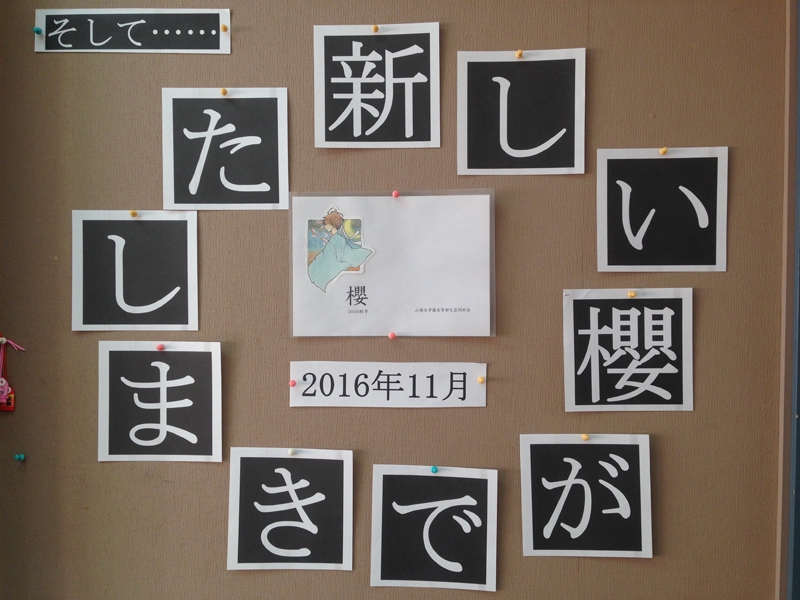 そして……
新しい櫻ができました
櫻
2016秋号
2016年11月